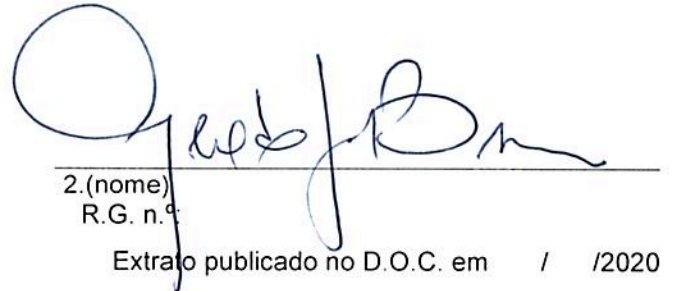 2.(nome)
R.G. n.º:
Extrato publicado no D.O.C. em / /2020